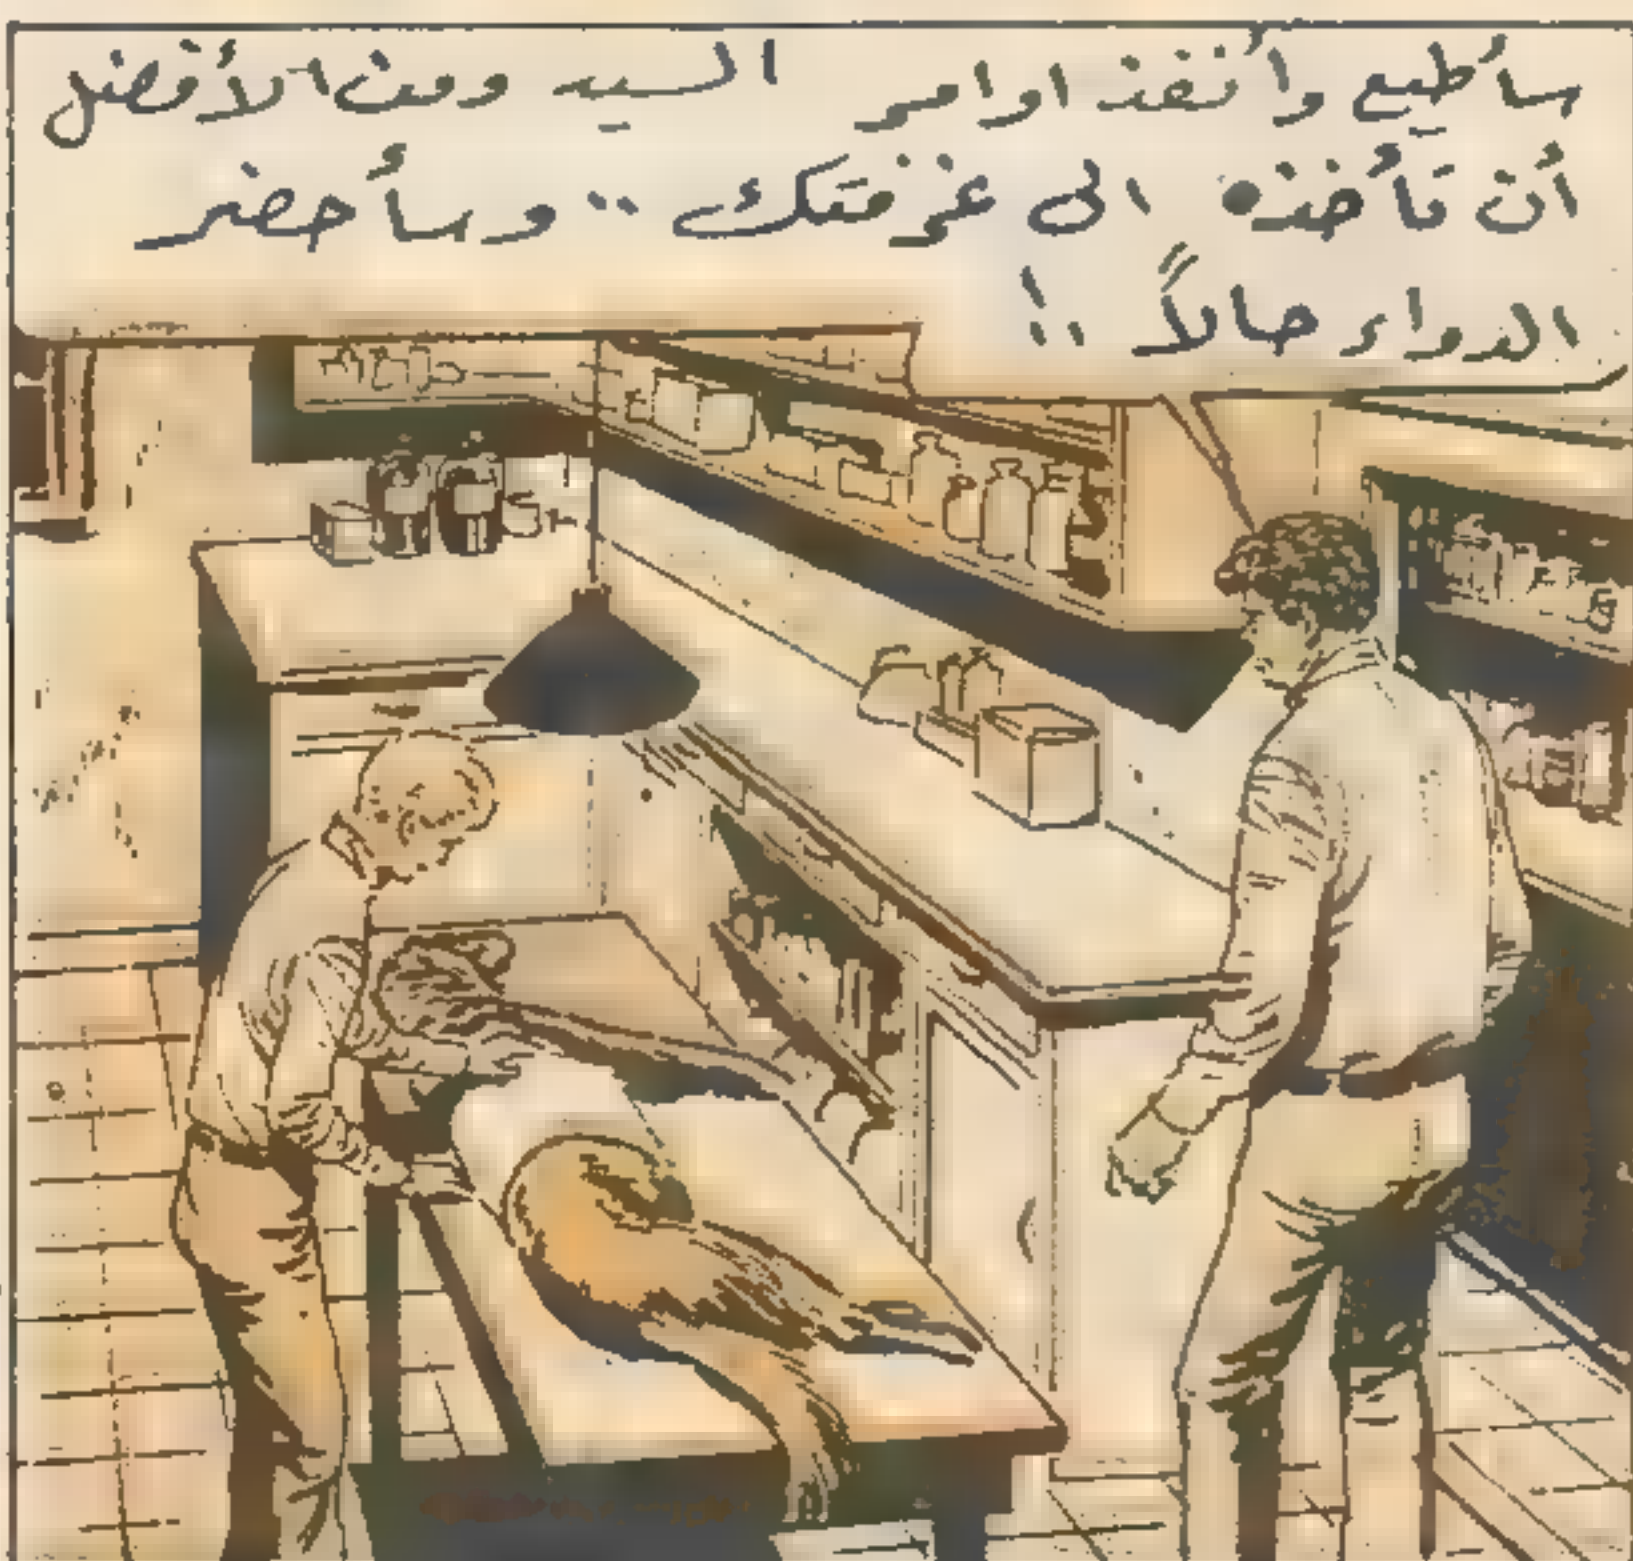 سأطيع وأنفذ اوامر السيد ومن الأفضل
أن تأخذه الى غرفتك .. وسأحضر
الدواء حالاً !!